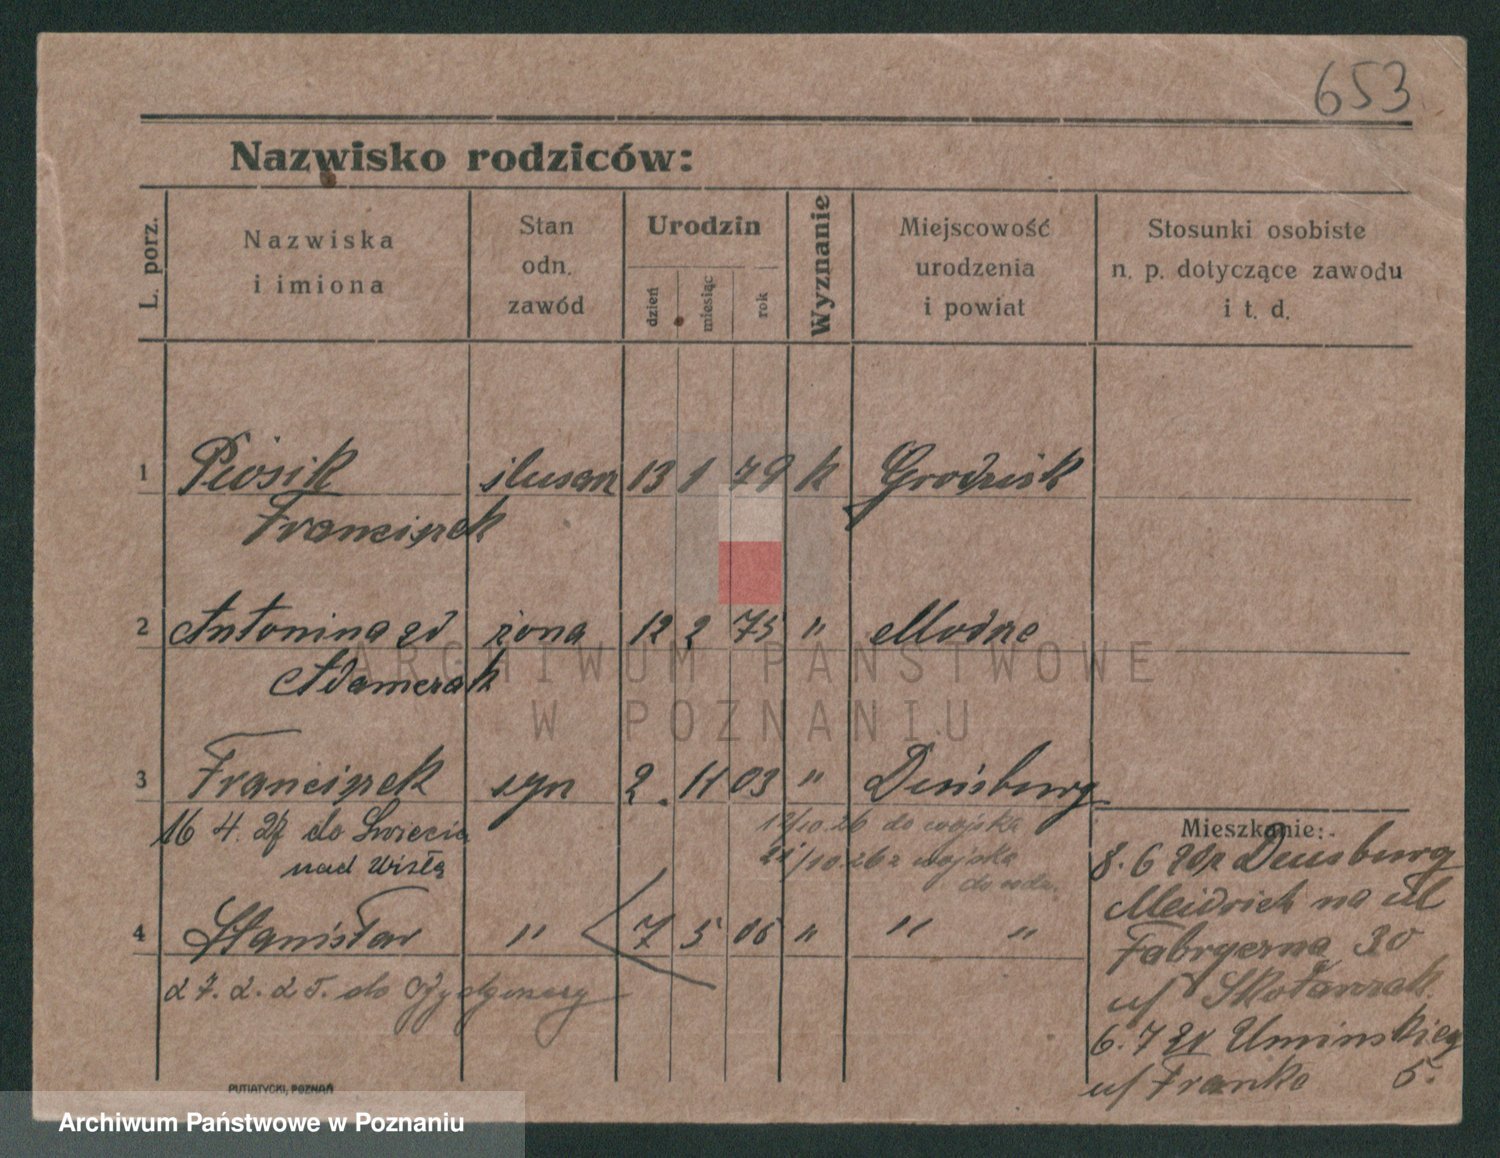 653
Nazwisko rodziców:
L. porz.
Nazwiska
i imiona
Stan
odn.
zawód
Urodzin
dzień
miesiąc
rok
Wyznanie
Miejscowość
urodzenia
i powiat
Stosunki osobiste
n. p. dotyczące zawodu
i t. d.
1 Piosik ślusarz 13 1 79 k Grodzisk
Franciszek
2 Antonina zd żona 12 2 75 " Modrze
Adamczak
ARCHIWUM PAŃSTWOWE
W POZNANIU
3 Franciszek syn 2. 11 03 " Duisburg
16 4. 27 do Świecia
nad Wisłą
12/10.26 do wojska
21/10.26 z wojska
do rodz.
4 Stanisław " 7 5 06 " " "
27. 2. 25. do Bydgoszczy
Mieszkanie:
8. 6 20 z Duisburg
Meidrich na ul
Fabryczna 30
u/ Skotarczak
6. 7 21 Umińskiego
u/ Franke 5.
PUTIATYCKI, POZNAŃ
Archiwum Państwowe w Poznaniu